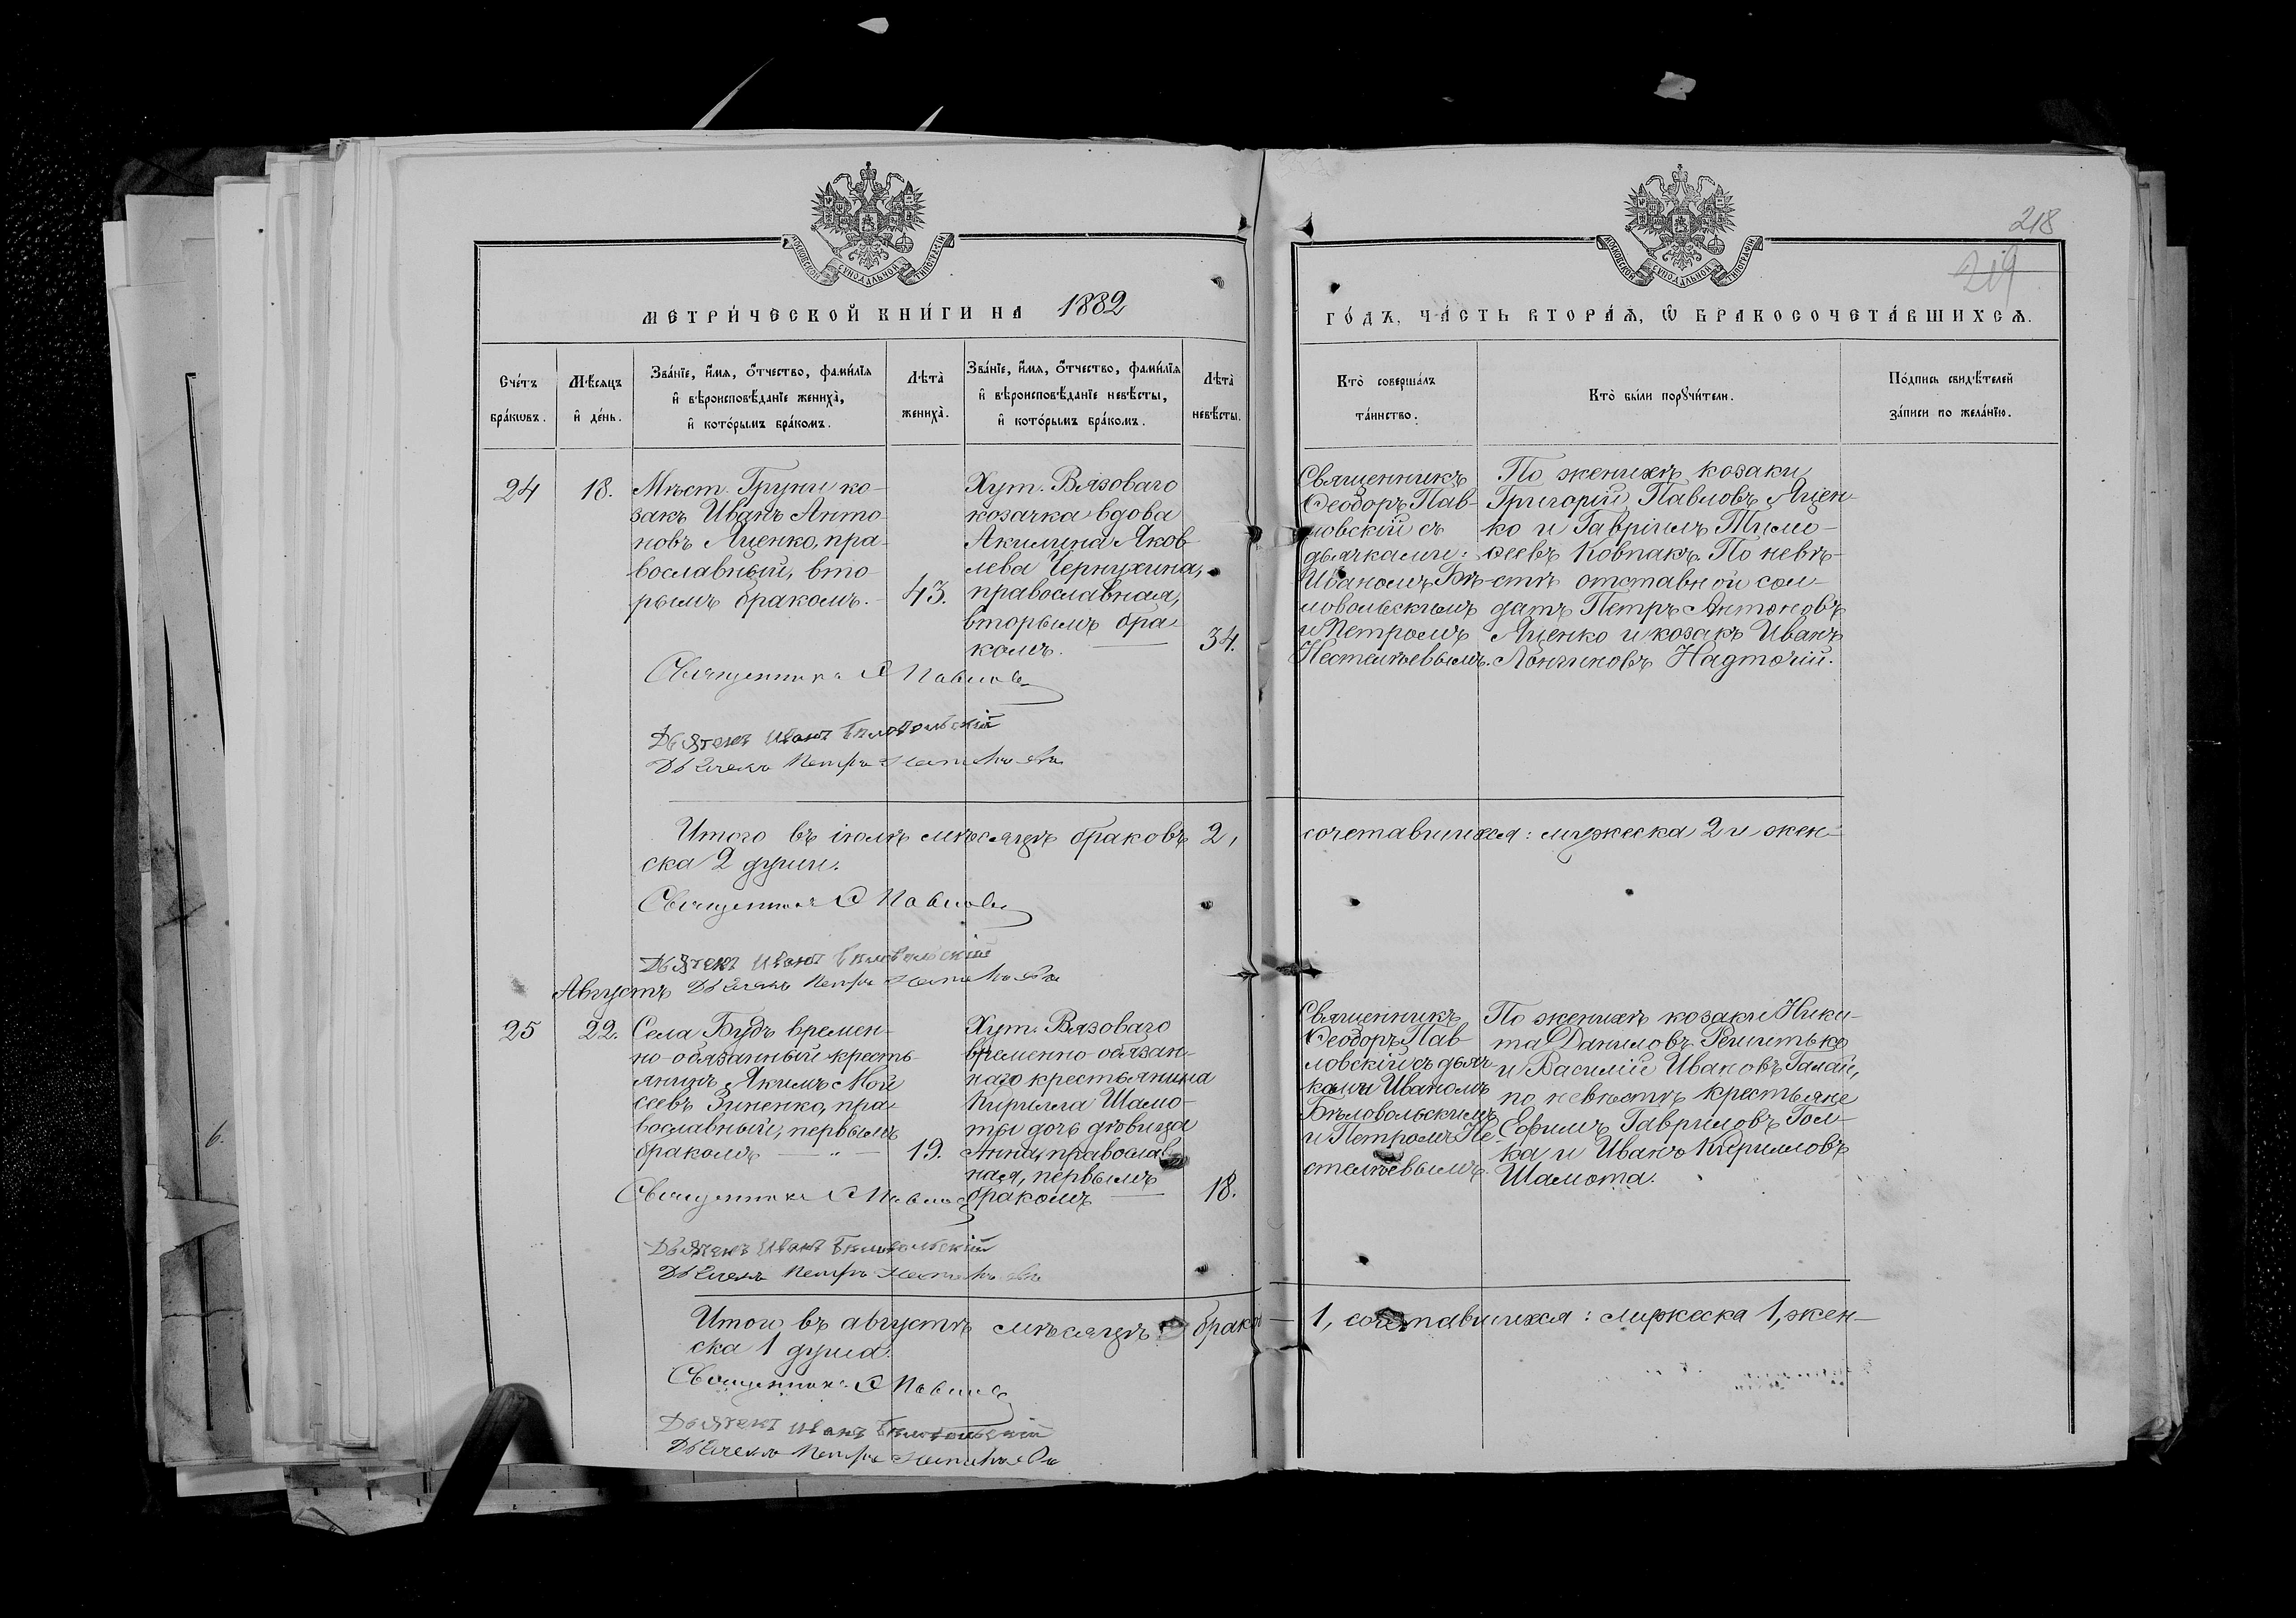 218
219
МОСКОВСКОЙ СѴНОДАЛЬНОЙ ТИПОГРАФІИ
МОСКОВСКОЙ СѴНОДАЛЬНОЙ ТИПОГРАФІИ
МЕТРИ́ЧЕСКОЙ КНИ́ГИ НА 1882
ГО́ДЪ, ЧА́СТЬ ВТОРА́Ѧ, Ѽ БРАКОСОЧЕТА́ВШИХСѦ.
Сче́тъ
бра́кѡвъ.
Мѣ́сяцъ
и҆ де́нь.
Зва́нїе, и҆́мѧ, ѻ҆́тчество, фами́лїѧ
и҆ вѣроисповѣ́данїе жениха̀,
и҆ кото́рымъ бра́комъ.
Лѣта̀
жениха̀.
Зва́нїе, и҆́мѧ, ѻ҆́тчество, фами́лїѧ
и҆ вѣроисповѣ́данїе невѣ́сты,
и҆ кото́рымъ бра́комъ.
Лѣта̀
невѣ́сты.
Кто̀ соверша́лъ
та́инство.
Кто̀ бы́ли порꙋчи́тели.
По́дпись свидѣ́телей
за́писи по жела́нїю.
24
18.
Мѣст. Груни ко-
закъ Иванъ Анто-
новъ Яценко, пра-
вославный, вто-
рымъ бракомъ.-
43.
Хут. Вязоваго
козачка вдова
Акилина Яков
лева Чернухина,
православная,
вторымъ бра
комъ.
34.
Священникъ
Ѳеодоръ Пав-
ловскій съ
дьячками:
Иваномъ Бѣ-
ловольскимъ
и Петромъ
Нестелѣевымъ.
По женихѣ козаки
Григорій Павловъ Яцен-
ко и Гавріилъ Тимо-
ѳеевъ Ковпакъ. По невѣ-
стѣ отставной сол-
датъ Петръ Антоновъ
Яценко и козакъ Иванъ
Лонгиновъ Надточій.
Священникъ Ѳ Павлов
Дьячекъ Иванъ Бѣловольскій
Дьячекъ Петръ
Итого въ іюлѣ мѣсяцѣ браковъ 2,
сочетавшихся: мужеска 2 и жен-
ска 2 души.
Священникъ Ѳ Павлов
Дьячекъ Иванъ Бѣловольскій
Дьячекъ Петръ
Августъ
25
22.
Села Будъ времен-
но-обязанный кресть-
янинъ Якимъ Мои
сеевъ Зиненко, пра-
вославный, первымъ
бракомъ — „ —
19.
Хут. Вязоваго
временно обязан-
наго крестьянина
Кирилла Шамо-
ты дочь дѣвица
Анна, православ
ная, первымъ
бракомъ
18.
Священникъ
Ѳеодоръ Пав
ловскій съ дьяч
ками Иваномъ
Бѣловольскимъ
и Петромъ Не-
стелѣевымъ.
По женихѣ козаки Ники-
та Даниловъ Решитько
и Василій Ивановъ Галай,
по невѣстѣ крестьяне
Ефимъ Гавриловъ Гол-
ка и Иванъ Кирилловъ
Шамота.
Священникъ Ѳ Павлов
Дьячекъ Иванъ Бѣловольскій
Дьячекъ Петръ
Итого въ августѣ мѣсяцѣ бракъ
1, сочетавшихся: мужеска 1, жен-
ска 1 душа.
Священникъ Ѳ Павлов
Дьячекъ Иванъ Бѣловольскій
Дьячекъ Петръ
6.